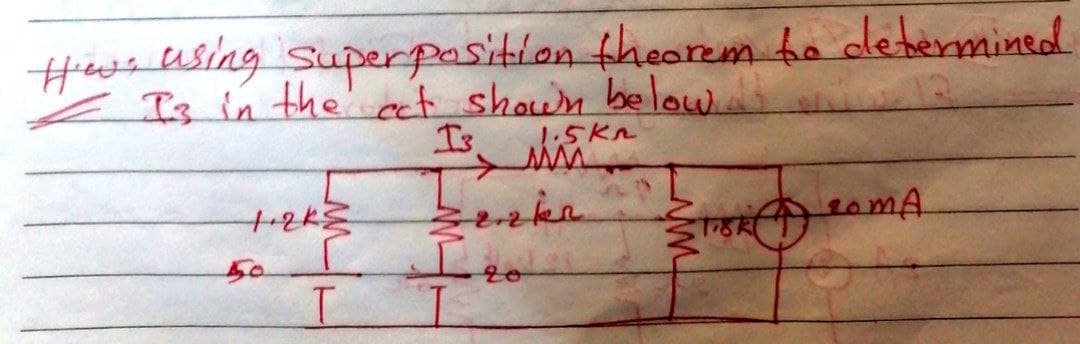 H.W: using superposition theorem to determined
I3 in the cct shown below
I3 1.5KΩ
1.2K 2.2kΩ 1.8K 20mA
50 20